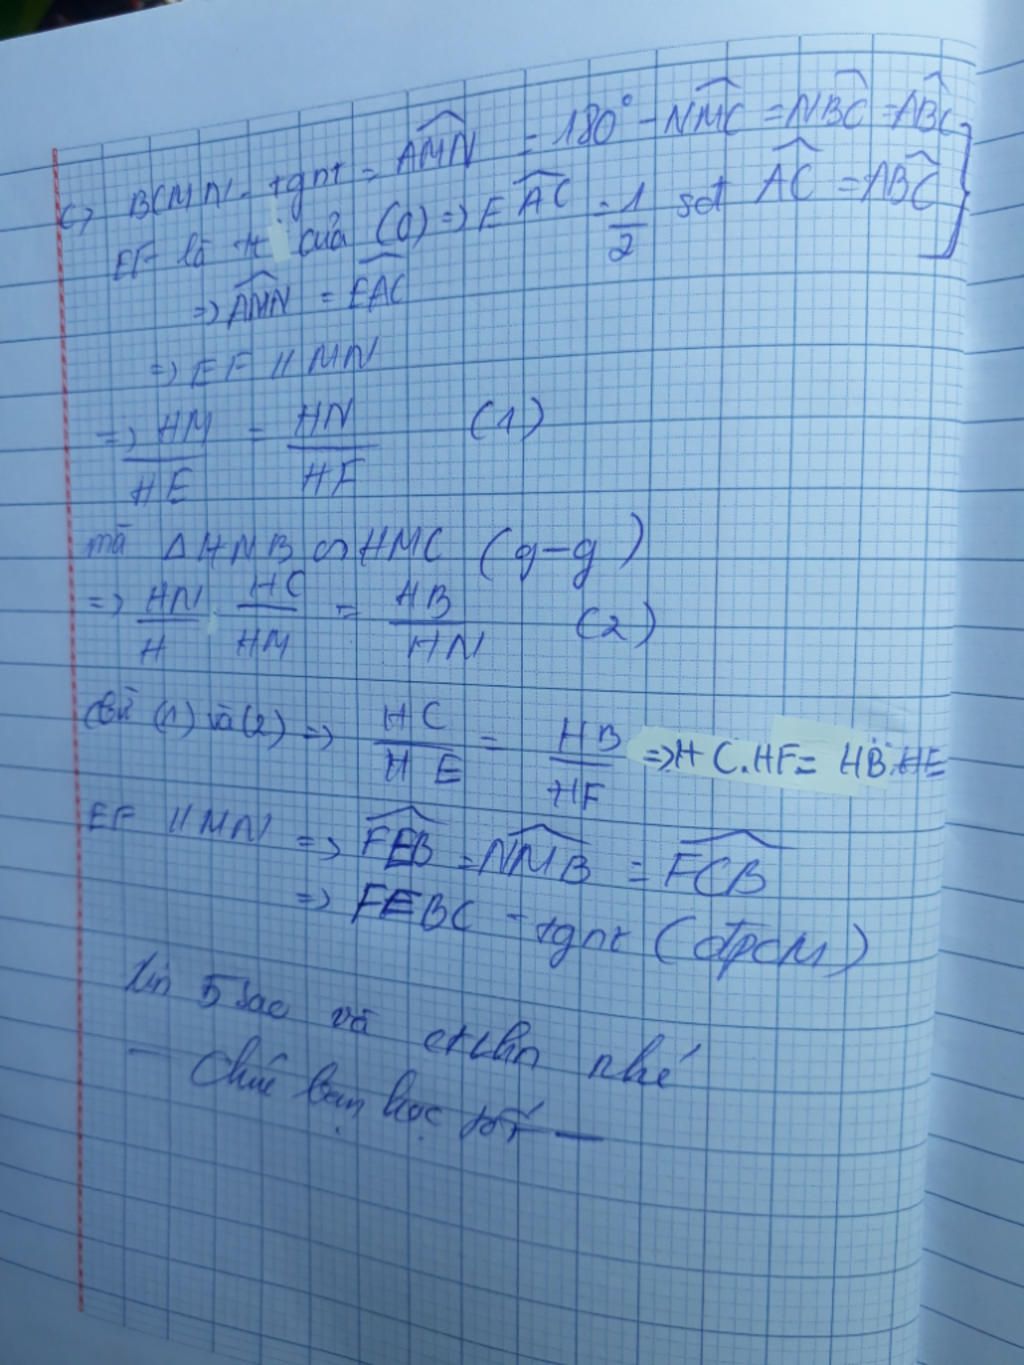 c) BCMN - tgnt ⇒ AMN = 180° - NMC = NBC = ABC
EF là tt của (O) ⇒ EAC = 1/2 sđ AC = ABC
⇒ AMN = EAC
⇒ EF // MN
⇒ HM/HE = HN/HF (1)
mà Δ HNB ∽ HMC (g-g)
⇒ HN/H HC/HM = HB/HN (2)
(1) và (2) ⇒ HC/HE = HB/HF ⇒ HC.HF = HB.HE
EF // MN ⇒ FEB = NMB = FCB
⇒ FEBC - tgnt (đpcm)
Xin 5 sao và ctlhn nhé
- Chúc bạn học tốt -